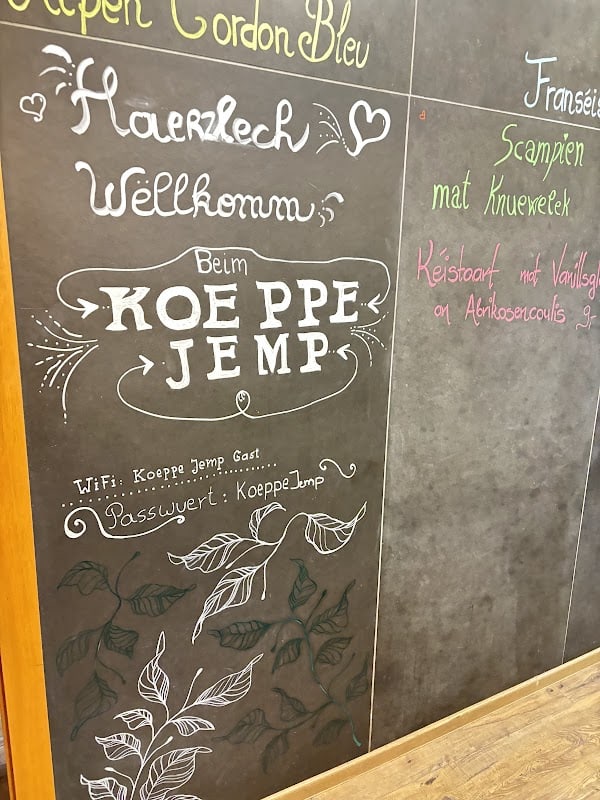 Alpen Cordon Bleu
Haerzlech
Wëllkomm
Beim
KOEPPE
JEMP
WiFi: Koeppe Jemp Gast
Passwuert: KoeppeJemp
Scampien
mat Knuewelek
Kéistaart mat
an Abrikosencoulis 9,-